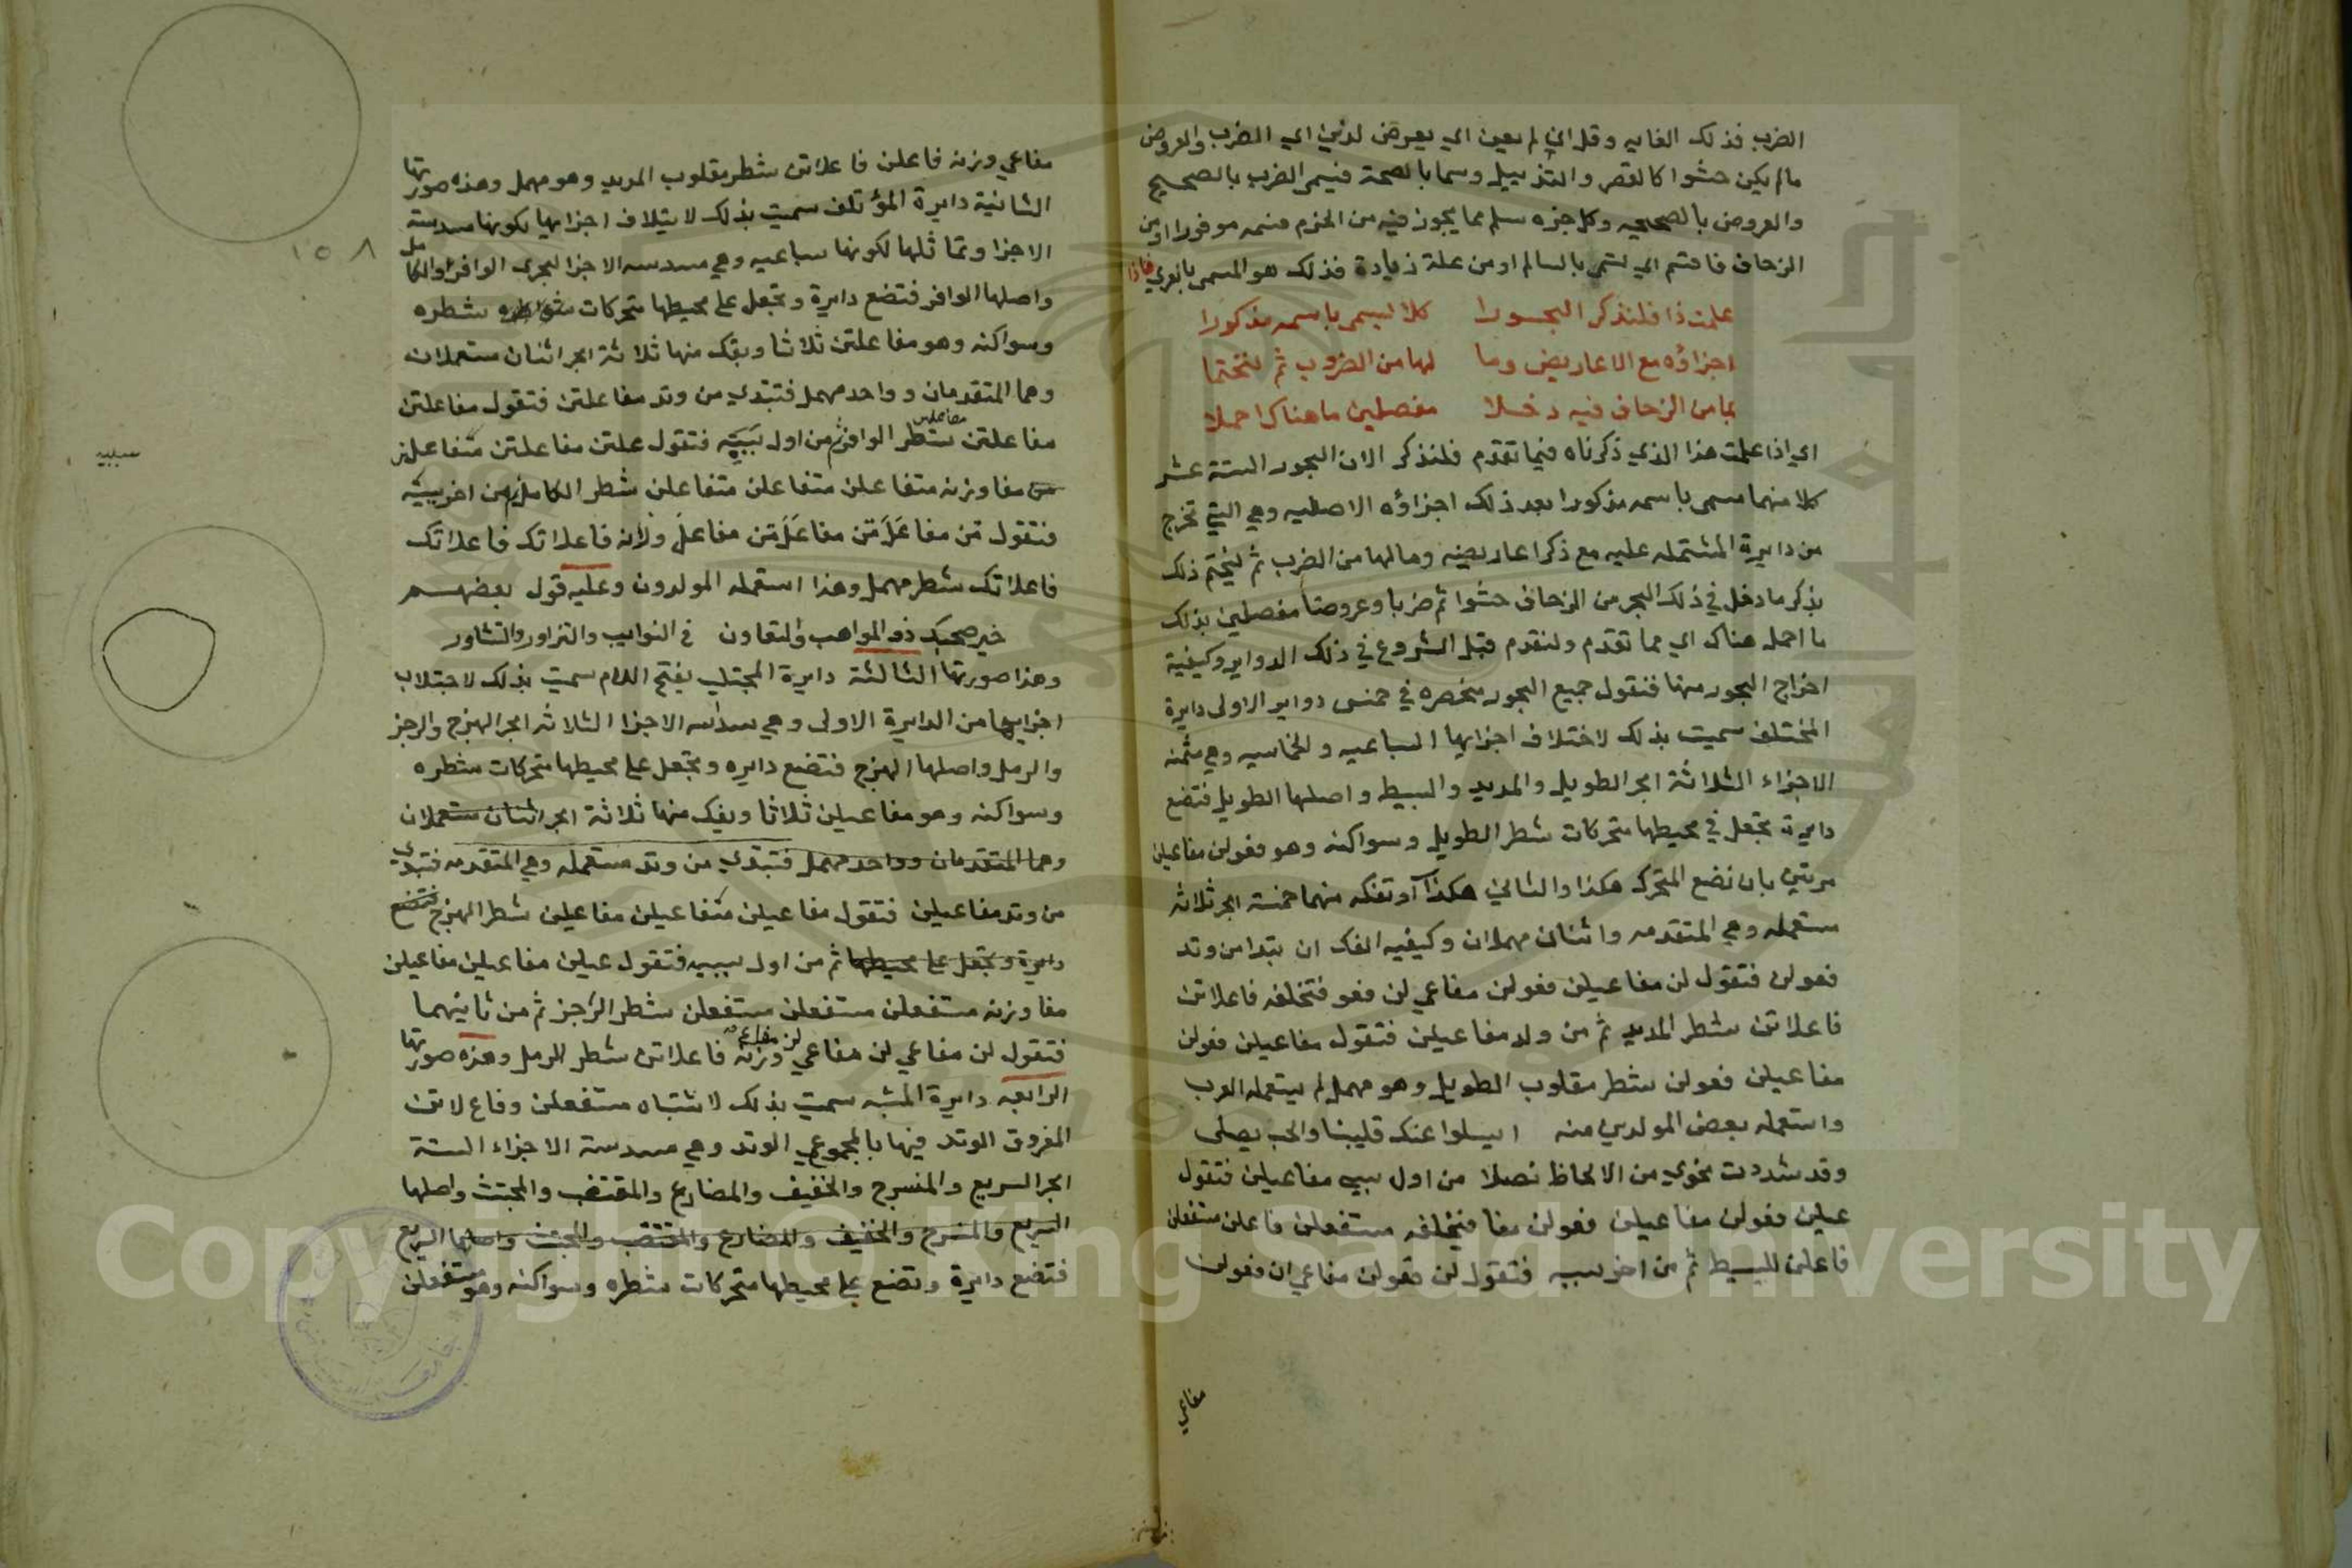 الضرب فذلك الغايه وقل ان لم يعين اي يعرض لدين اي الضرب والعروض
مالم يكن حشوا كالقصر والتذييل وسما بالصحة فيسمى الضرب بالصحيح
والعروض بالصحيحه وكل جزء سلم مما يجوز فيه من الخزم فسمه موفورا اومن
الزحاف فاقسم اي لسمى بالسالم اومن علة زيادة فذلك هو المسمى بالمعري فاذا
علمت ذا فلنذكر البحورا كلا ليسمى باسمه مذكورا
اجزاؤه مع الاعاريض وما لها من الضروب ثم لنختما
بما من الزحاف فيه دخلا مفصلين ما هناك اجملا
اي اذا علمت هذا الذي ذكرناه فيما تقدم فلنذكر الان البحور الستة عشر
كلا منهما مسمى باسمه مذكورا بعد ذلك اجزاؤه الاصليه وهي التي تخرج
من دايرة المشتمله عليه مع ذكر اعاريضه وما لها من الضرب ثم لنختم ذلك
بذكر ما دخل في ذلك البحر من الزحاف حشوا ثم ضربا وعروضا مفصلين بذلك
ما اجمل هناك اي مما تقدم ولنقدم قبل الشروع في ذلك الدواير وكيفية
اخراج البحور منها فنقول جميع البحور منحصره في خمس دواير الاولى دايرة
المختلف سميت بذلك لاختلاف اجزايها السباعيه والخماسيه وهي مثمنه
الاجزاء الثلاثة ابحر الطويل والمديد والبسيط واصلها الطويل فتضع
دايرة تجعل في محيطها متحركات شطر الطويل وسواكنه وهو فعولن مفاعيلن
مرتين بان نضع المتحرك هكذا والساكن هكذا آ وتفكه منهما خمسة ابحر ثلاثه
مستعمله وهي المتقدمه واثنان مهملان وكيفيه الفك ان تبدا من وتد
فعولن فتقول لن مفاعيلن فعولن مفاعي لن فعو فتخلفه فاعلاتن
فاعلاتن شطر المديد ثم من ولد مفاعيلن فتقول مفاعيلن فعولن
مفاعيلن فعولن شطر مقلوب الطويل وهو مهمل لم يستعمله العرب
واستعمله بعض المولدين منه ايسلوا عنك قلبينا والحب يصلى
وقد شددت نحوي من الالحاظ نصلا من اول سبب مفاعيلن فتقول
عيلن فعولن مفاعيلن فعولن مفا فيخلفه مستفعلن فاعلن مستفعلن
فاعلن للبسيط ثم من اخر سببه فتقول لن فعولن مفاعي لن فعولن
مفاعي
مفاعي وزنه فاعلن فاعلاتن شطر مقلوب المديد وهو مهمل وهذه صورتها
الثانية دايرة المؤتلف سميت بذلك لايتلاف اجزايها لكونها مسدسة
الاجزا وتماثلها لكونها سباعيه وهي مسدسه الاجزا لبحري الوافر والكامل
واصلها الوافر فتضع دايرة وتجعل على محيطها متحركات شطره
وسواكنه وهو مفاعلتن ثلاثا ويفك منها ثلاثة ابحر اثنان مستعملان
وهما المتقدمان وواحد مهمل فتبتدي من وتد مفاعلتن فتقول مفاعلتن
مفاعلتن مفاعلتن شطر الوافر ثم من اول سببيه فتقول علتن مفاعلتن متفاعلن
مفا وزنه متفاعلن متفاعلن متفاعلن شطر الكامل ثم من اخر سببيه
فتقول تن مفاعلتن مفاعلتن مفاعل وزنه فاعلاتك فاعلاتك
فاعلاتك شطر مهمل وهذا استعمله المولدون وعليه قول بعضهم
خير صحبك ذو المواهب والتعاون في النوايب والتزاور والتشاور
وهذا صورتها الثالثة دايرة المجتلب بفتح اللام سميت بذلك لاجتلاب
اجزايها من الدايرة الاولى وهي سداسه الاجزا الثلاثه ابحر الهزج والرجز
والرمل واصلها الهزج فتضع دايره وتجعل على محيطها متحركات شطره
وسواكنه وهو مفاعيلن ثلاثا ويفك منها ثلاثة ابحر اثنان مستعملان
وهما المتقدمان وواحد مهمل فتبتدي من وتد مستعمله وهي المتقدمه فتبتدي
من وتد مفاعيلن فتقول مفاعيلن مفاعيلن مفاعيلن شطر الهزج فتضع
دايرة وتجعل على محيطها ثم من اول سببيه فتقول عيلن مفاعيلن مفاعيلن
مفا وزنه مستفعلن مستفعلن مستفعلن شطر الرجز ثم من ثانيهما
فتقول لن مفاعي لن مفاعي لن مفاعي وزنه فاعلاتن شطر الرمل وهذه صورتها
الرابعه دايرة المشبه سميت بذلك لاشتباه مستفعلن وفاع لاتن
المفروق الوتد فيها بالمجموعي الوتد وهي مسدسة الاجزاء الستة
ابحر السريع والمنسرح والخفيف والمضارع والمقتضب والمجتث واصلها
السريع والمنسرح والخفيف والمضارع والمقتضب والمجتث واصلها السريع
فتضع دايرة وتضع على محيطها متحركات شطره وسواكنه وهو مستفعلن
١٥٨
سببيه
Copyright © King Saud University